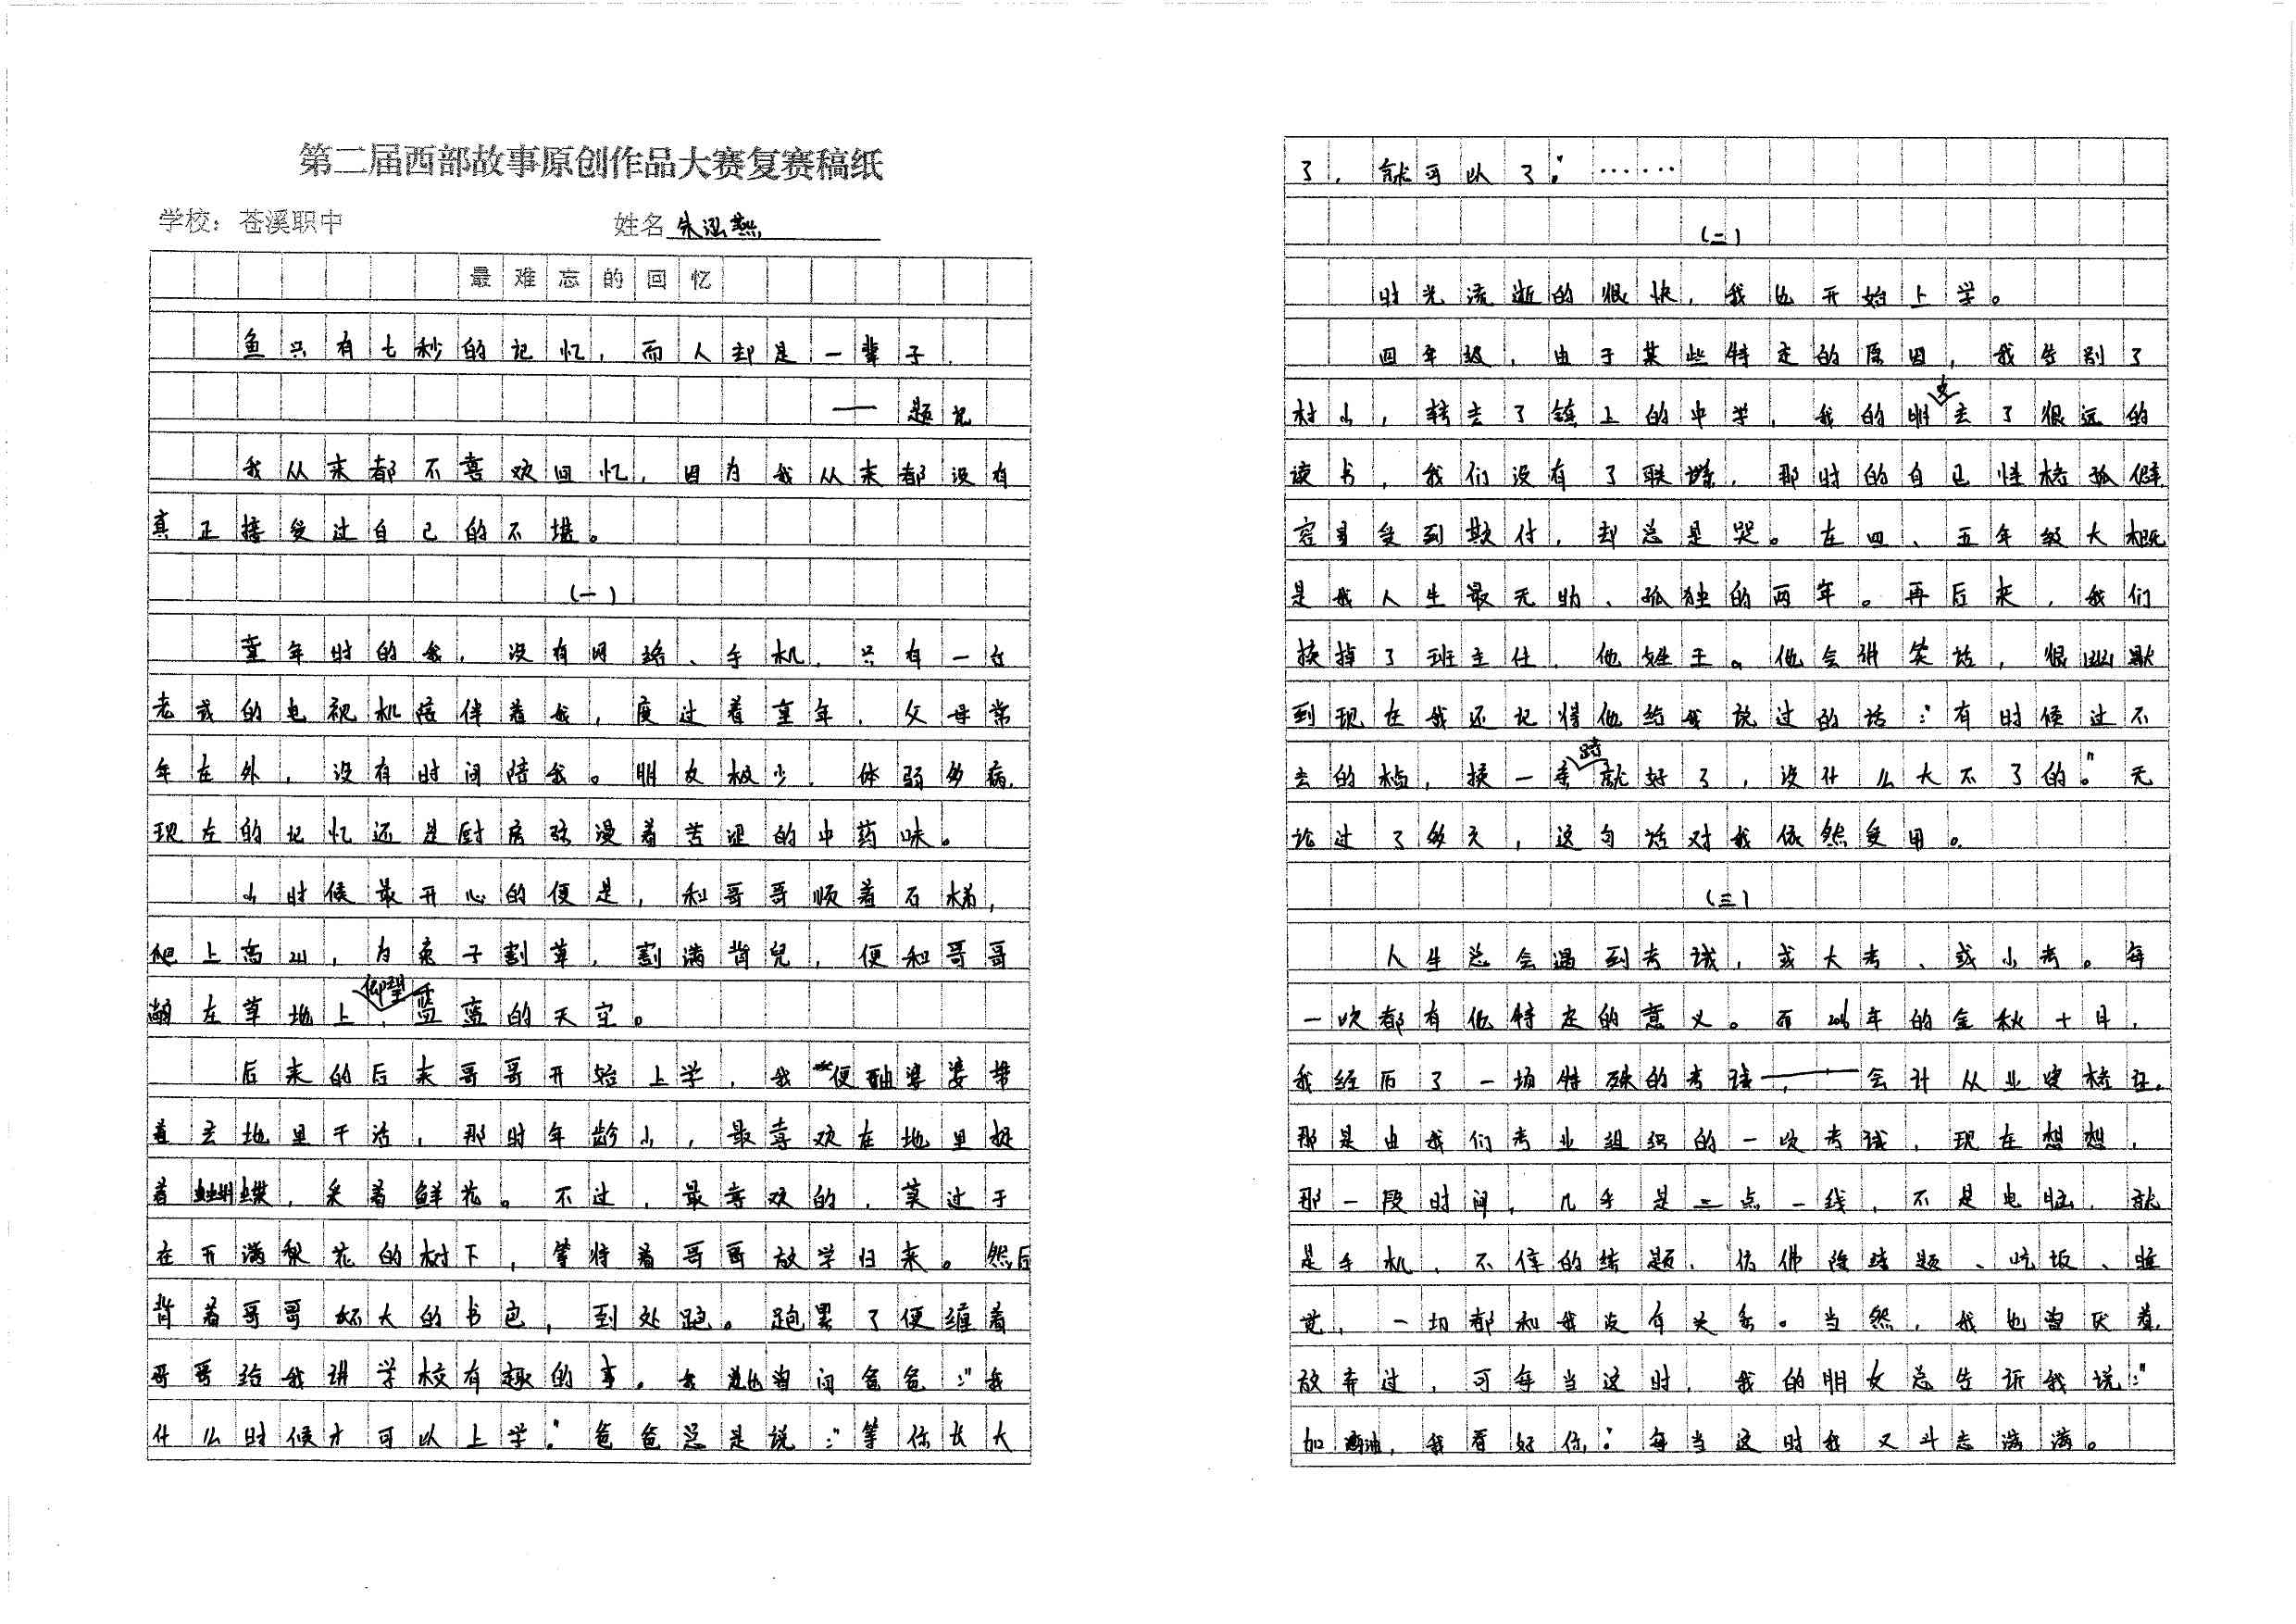 第二届西部故事原创作品大赛复赛稿纸
学校：苍溪职中 姓名 朱泓燕
最难忘的回忆
鱼只有七秒的记忆，而人却是一辈子.
—— 题记
我从来都不喜欢回忆，因为我从来都没有
真正接受过自己的不堪。
(一)
童年时的我，没有网络、手机，只有一台
老式的电视机陪伴着我，度过着童年，父母常
年在外，没有时间陪我。朋友极少，体弱多病，
现在的记忆还是厨房弥漫着苦涩的中药味。
小时候最开心的便是，和哥哥顺着石梯，
爬上高山，为兔子割草，割满背篼，便和哥哥
躺在草地上，仰望蓝蓝的天空。
后来的后来哥哥开始上学，我便由婆婆带
着去地里干活，那时年龄小，最喜欢在地里捉
着蝴蝶，采着鲜花。不过，最喜欢的，莫过于
在开满梨花的树下，等待着哥哥放学归来。然后
背着哥哥好大的书包，到处跑。跑累了便缠着
哥哥给我讲学校有趣的事。我也曾问爸爸：“我
什么时候才可以上学。”爸爸总是说：“等你长大
了，就可以了。”……
(二)
时光流逝的很快，我也开始上学。
四年级，由于某些特定的原因，我告别了
村小，转去了镇上的中学，我的朋友去了很远的
读书，我们没有了联系，那时的自己性格孤僻，
容易受到欺付，却总是哭。在四、五年级大概
是我人生最无助、孤独的两年。再后来，我们
换掉了班主任，他姓王。他会讲笑话，很幽默
到现在我还记得他给我说过的话：“有时候过不
去的槛，换一条路就好了，没什么大不了的。”无
论过了多久，这句话对我依然受用。
(三)
人生总会遇到考试，或大考、或小考。每
一次都有他特定的意义。而2016年的金秋十月，
我经历了一场特殊的考试——会计从业资格证。
那是由我们专业组织的一次考试，现在想想，
那一段时间，几乎是三点一线，不是电脑，就
是手机，不停的练题，仿佛除练题、吃饭、睡
觉，一切都和我没有关系。当然，我也曾厌着，
放弃过，可每当这时，我的朋友总告诉我说：“
加油，我看好你。”每当这时我又斗志满满。